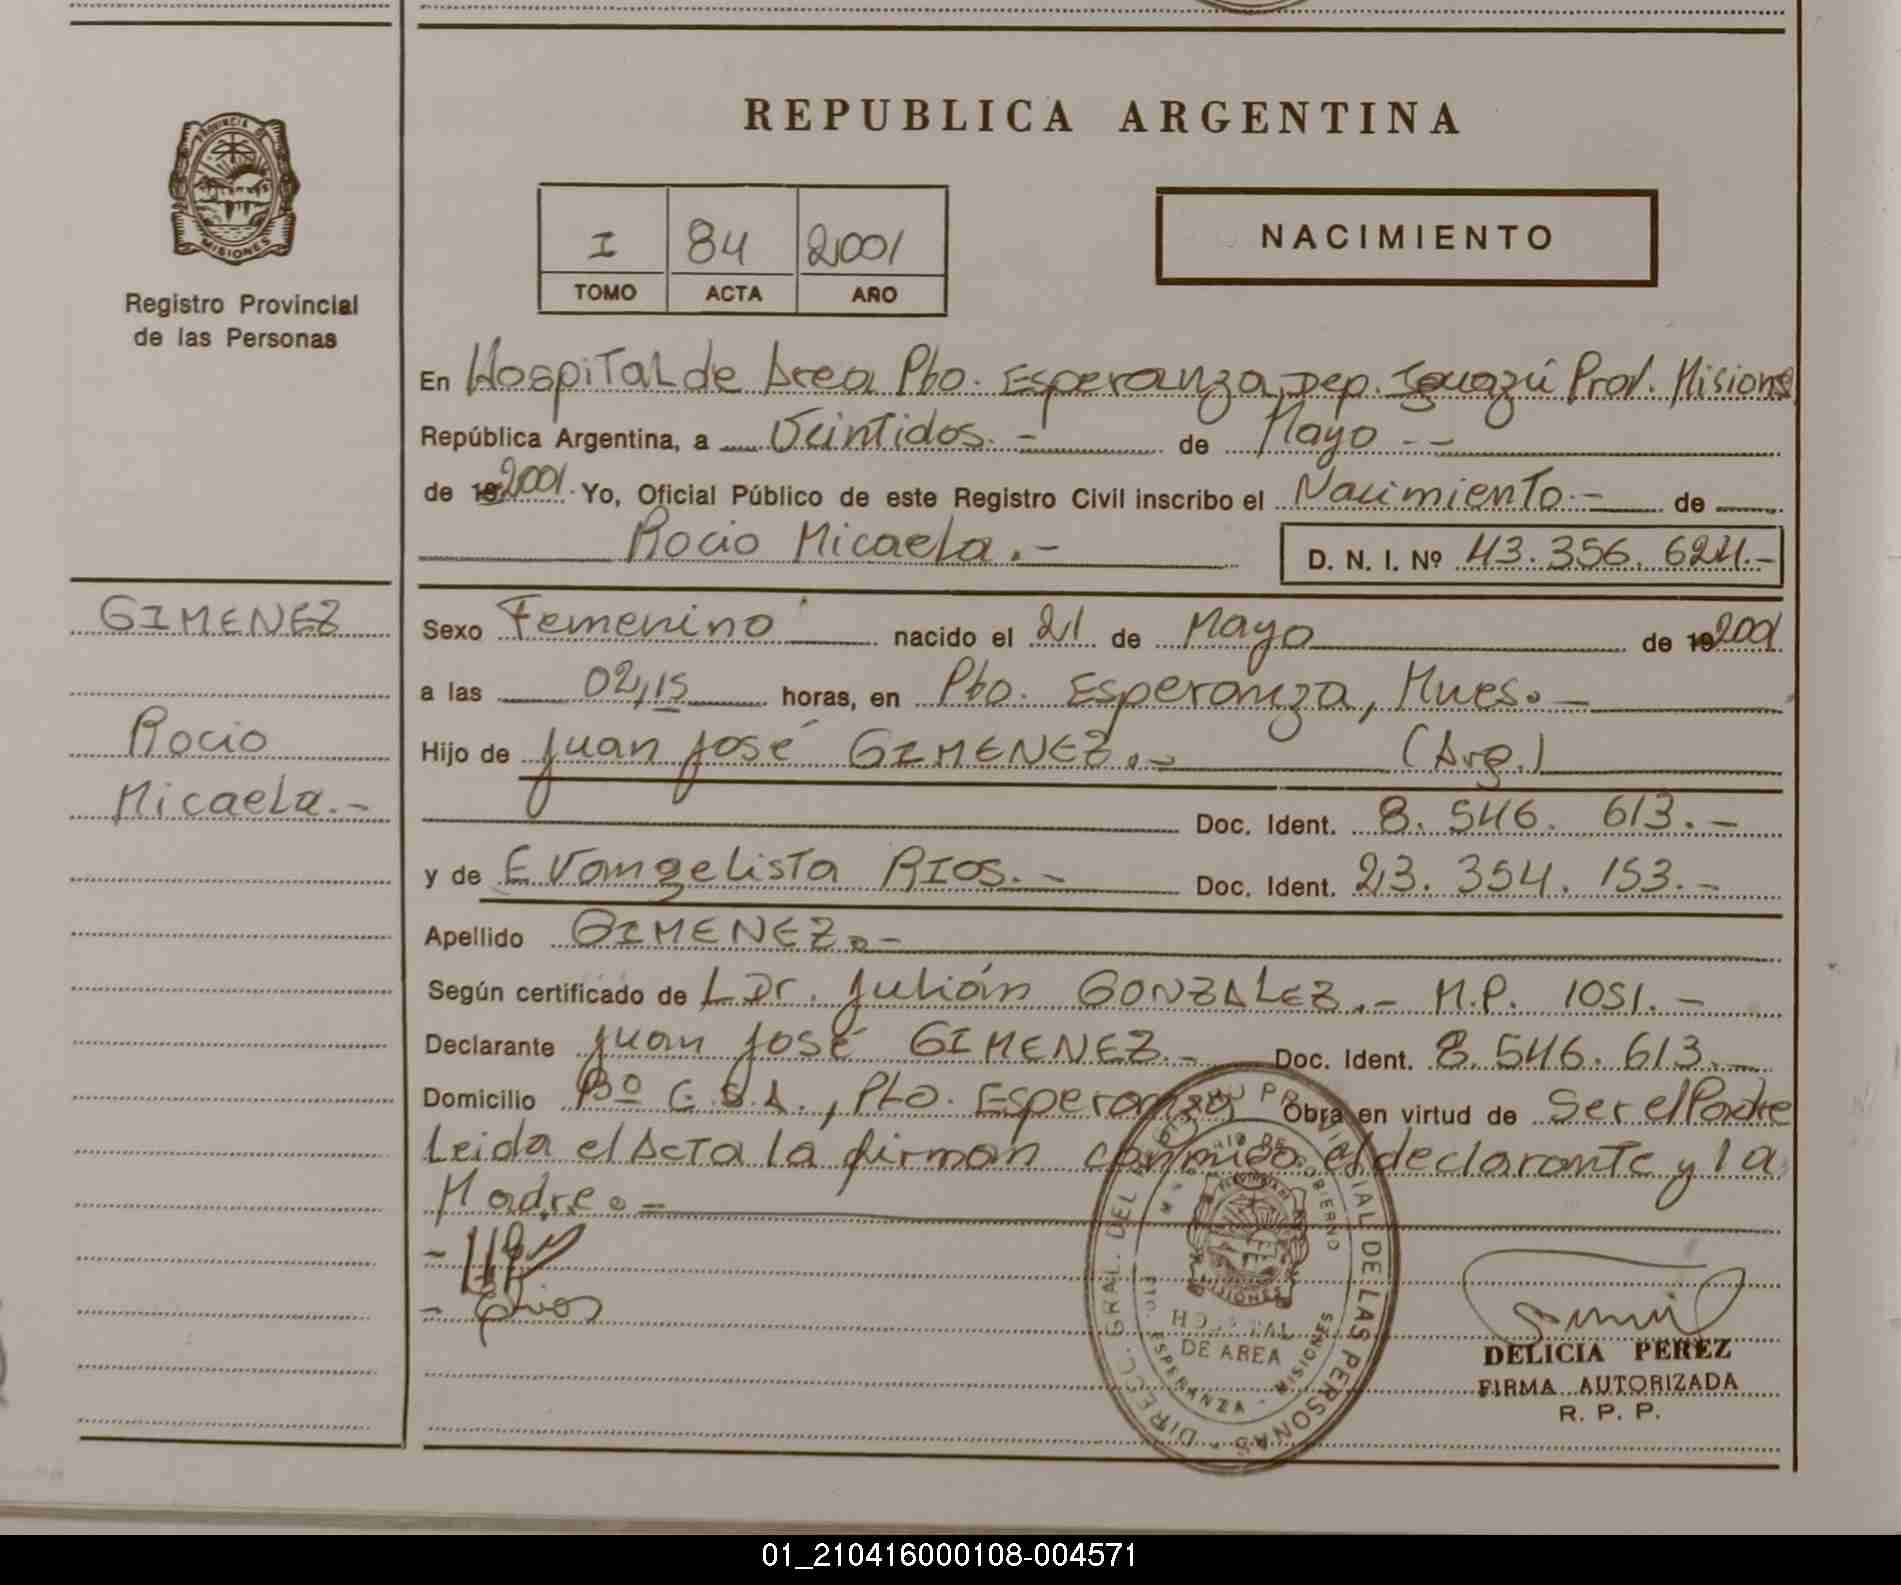 REPUBLICA ARGENTINA
I 84 2001
TOMO ACTA AÑO
NACIMIENTO
PROVINCIA DE
MISIONES
Registro Provincial
de las Personas
En Hospital de Area Pto. Esperanza, Dep. Iguazú Prov. Misiones
República Argentina, a Veintidos.- de Mayo.--
de 192001. Yo, Oficial Público de este Registro Civil inscribo el Nacimiento.- de
Rocio Micaela.- D. N. I. Nº 43.356.624.-
GIMENEZ
Rocio
Micaela.-
Sexo Femenino nacido el 21 de Mayo de 192001
a las 02,15 horas, en Pto. Esperanza, Mnes.-
Hijo de Juan José GIMENEZ.- (Arg.)
Doc. Ident. 8.546.613.-
y de Evangelista RIOS.- Doc. Ident. 23.354.153.-
Apellido GIMENEZ.-
Según certificado de L Dr. Julián GONZALEZ.- M.P. 1051.-
Declarante Juan José GIMENEZ.- Doc. Ident. 8.546.613.-
Domicilio Bº C.S.A., Pto. Esperanza Obra en virtud de Ser el Padre
Leida el Acta la firman conmigo el declarante y la
Madre.-
ERios
DIRECC. GRAL. DEL REGISTRO PROVINCIAL DE LAS PERSONAS
MINISTERIO DE GOBIERNO
HOSPITAL
DE AREA
PTO. ESPERANZA - MISIONES
DELICIA PEREZ
FIRMA AUTORIZADA
R. P. P.
01_210416000108-004571